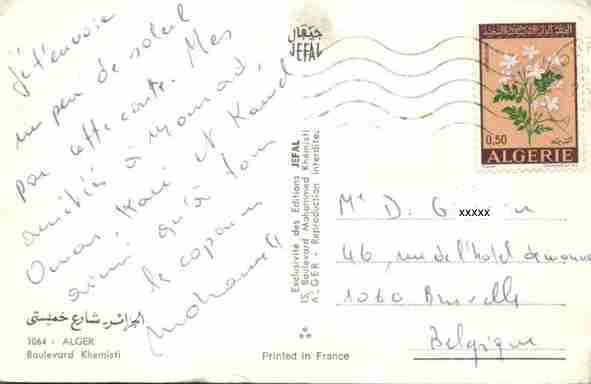 Je t'envoie
un peu de soleil
par cette carte. Mes
amitiés à
Omar, et
ainsi qu'à tous
le copains
Mohamed
الجزائر شارع خميستي
1064 - ALGER
Boulevard Khemisti
جيفال
JEFAL
Exclusivité des Editions JEFAL
15, Boulevard Mohammed Khémisti
ALGER - Reproduction interdite.
Printed in France
0,50
ALGERIE
Mr D. G xxxxx
46, rue de l'hotel des monnaies
1060 Bruxelle
Belgique